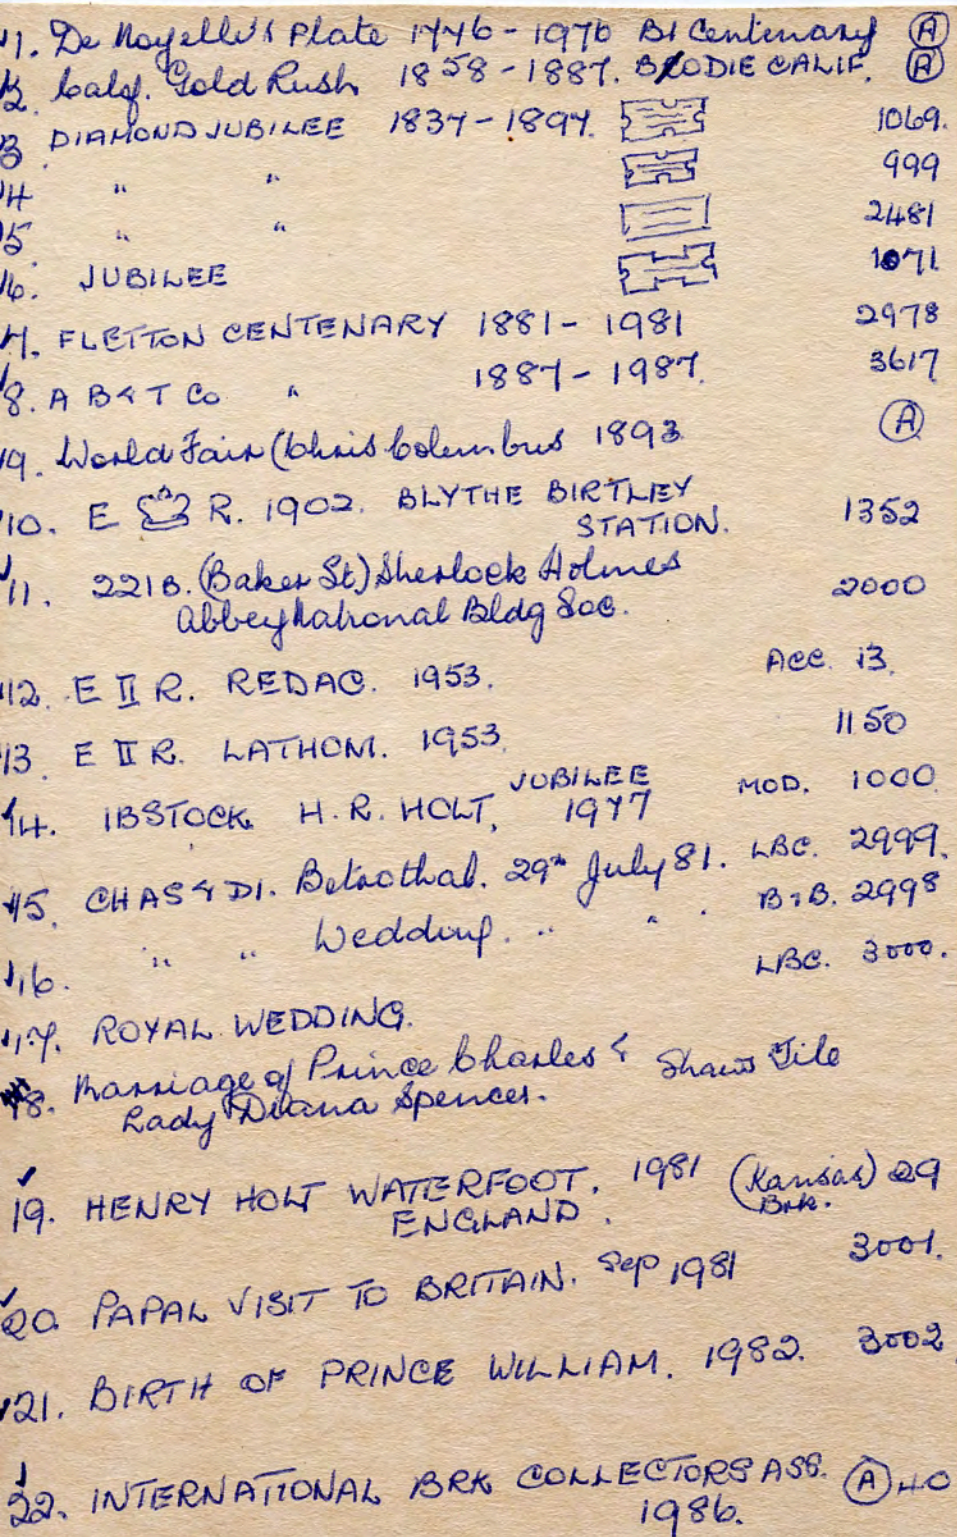 1. De Noyelle's Plate 1776 - 1976 Bi Centenary (A)
2. Calif. Gold Rush 1858 - 1887. BODIE CALIF. (A)
3 DIAMOND JUBILEE 1837 - 1897. 1069.
4 " " 999
5 " " 2481
6. JUBILEE 1071
7. FLETTON CENTENARY 1881 - 1981 2978
8. A B & T Co " 1887 - 1987. 3617
9. World Fair (Chris Columbus 1893 (A)
10. E R. 1902. BLYTHE BIRTLEY 1352
STATION.
11. 221B. (Baker St) Sherlock Holmes 2000
Abbey National Bldg Soc.
12. E II R. REDAC. 1953. ACC. 13.
13. E II R. LATHOM. 1953. 1150
14. IBSTOCK H.R. HOLT, JUBILEE 1977 MOD. 1000
15. CHAS & DI. Betrothal. 29th July 81. LBC. 2999.
B & B. 2998
16. " " Wedding. " " . LBC. 3000.
17. ROYAL WEDDING.
18. Marriage of Prince Charles & Shaws Tile
Lady Diana Spencer.
19. HENRY HOLT WATERFOOT. 1981 (Kansas) 29
ENGLAND. Brk.
20. PAPAL VISIT TO BRITAIN. Sep 1981 3001.
21. BIRTH OF PRINCE WILLIAM. 1982. 3002
22. INTERNATIONAL BRK COLLECTORS ASS. (A) 40
1986.